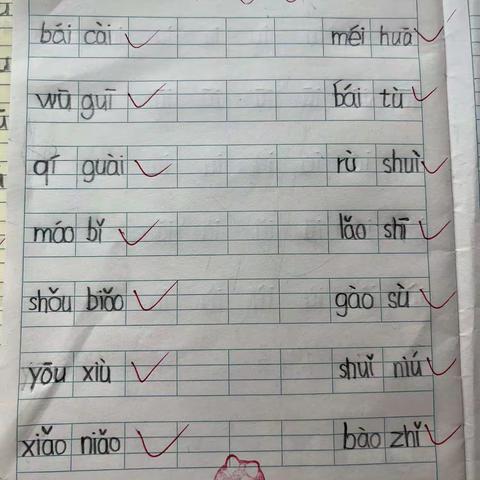 bái cài méi huā
wū guī bái tù
qí guài rù shuì
máo bǐ lǎo shī
shǒu biǎo gào sù
yōu xiù shuǐ niú
xiǎo niǎo bào zhǐ